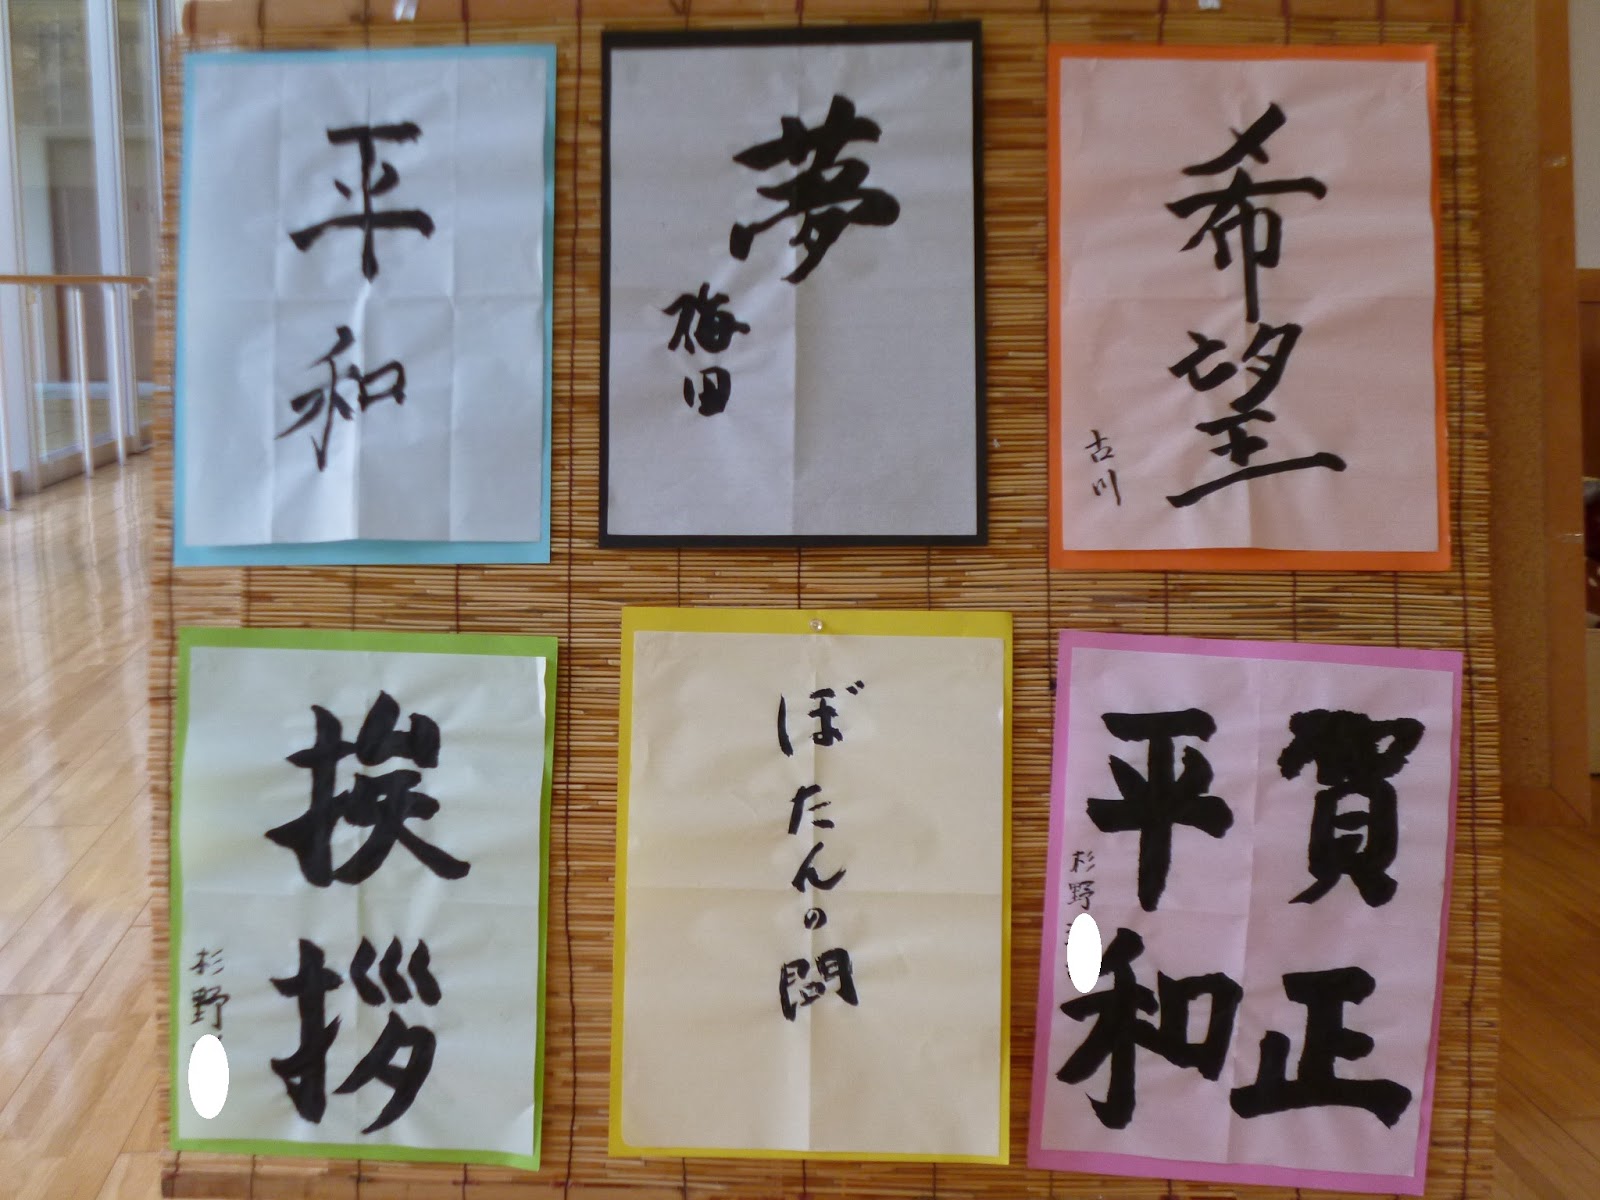 平和
夢
梅田
希望
古川
挨拶
杉野
ぼたんの間
賀正
平和
杉野